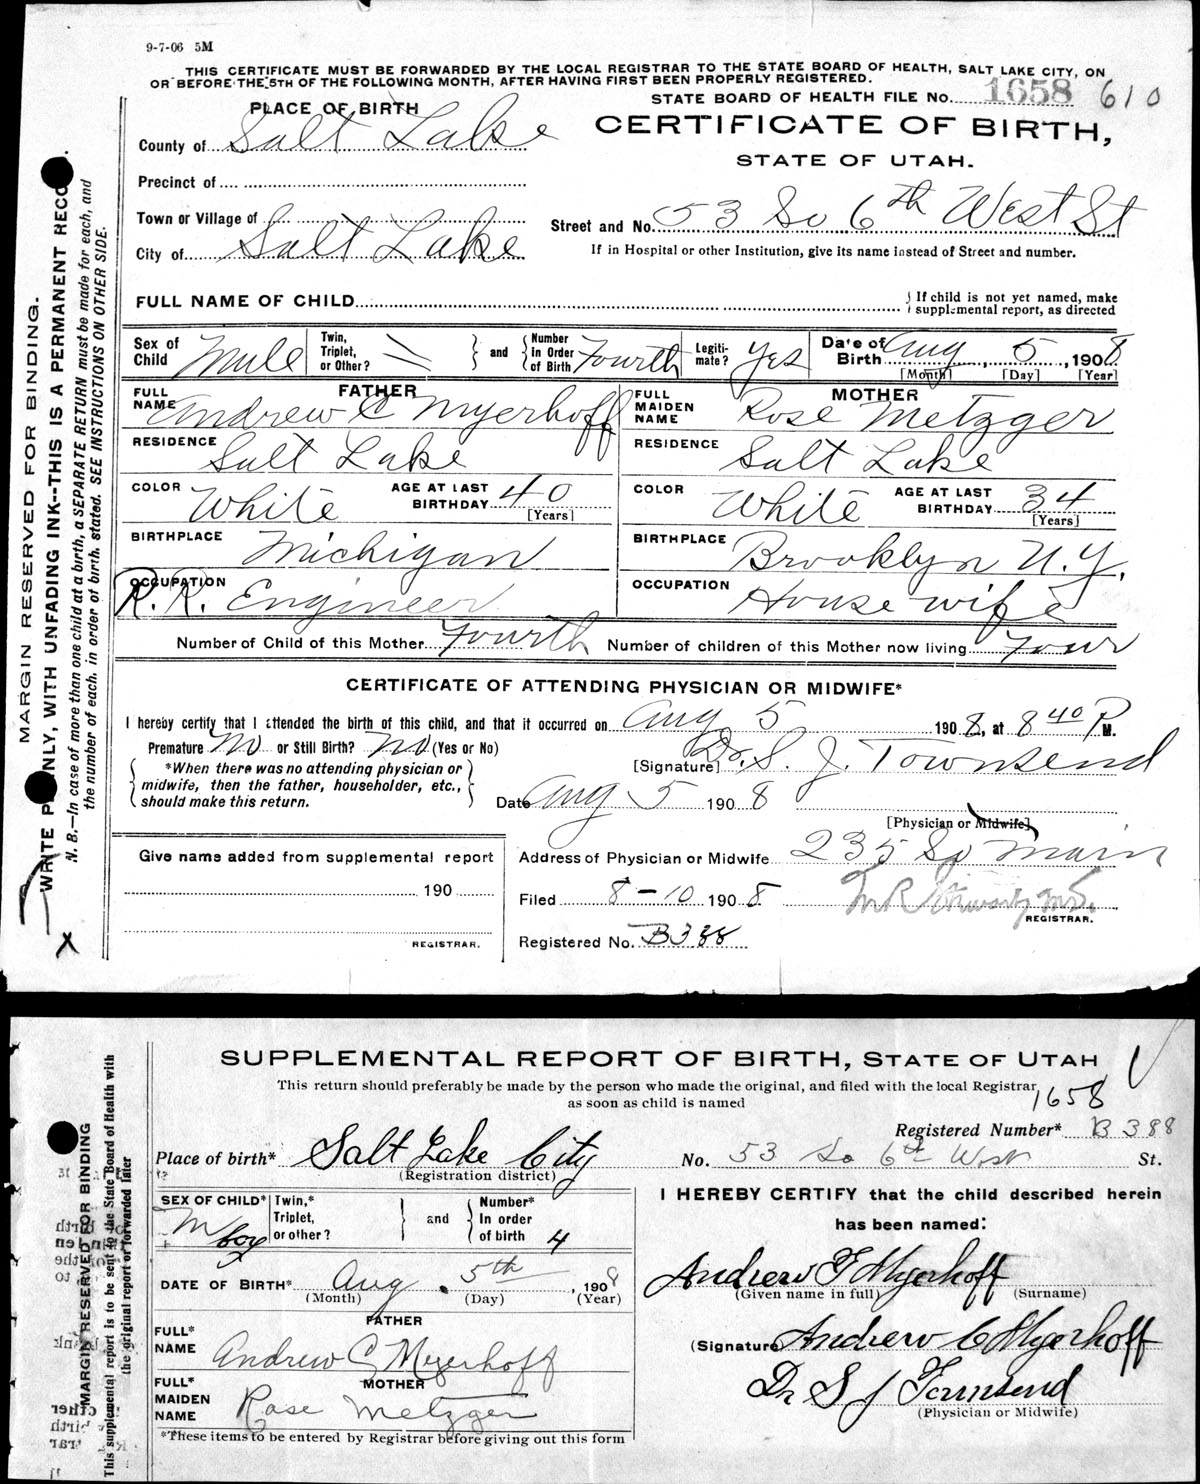 9-7-06 5M
THIS CERTIFICATE MUST BE FORWARDED BY THE LOCAL REGISTRAR TO THE STATE BOARD OF HEALTH, SALT LAKE CITY, ON
OR BEFORE THE 5TH OF THE FOLLOWING MONTH, AFTER HAVING FIRST BEEN PROPERLY REGISTERED.
STATE BOARD OF HEALTH FILE No. 1658 610
PLACE OF BIRTH
CERTIFICATE OF BIRTH,
County of Salt Lake
STATE OF UTAH.
Precinct of
Town or Village of
Street and No. 53 So 6th West St
City of Salt Lake
If in Hospital or other Institution, give its name instead of Street and number.
FULL NAME OF CHILD
If child is not yet named, make
supplemental report, as directed
Sex of Child Male
Twin, Triplet, or Other?
and
Number In Order of Birth Fourth
Legiti-mate? Yes
Date of Birth Aug 5, 1908
[Month] [Day] [Year]
FATHER
FULL NAME Andrew C Myerhoff
MOTHER
FULL MAIDEN NAME Rose Metzger
RESIDENCE Salt Lake
RESIDENCE Salt Lake
COLOR White
AGE AT LAST BIRTHDAY 40
[Years]
COLOR White
AGE AT LAST BIRTHDAY 34
[Years]
BIRTHPLACE Michigan
BIRTHPLACE Brooklyn N.Y.
OCCUPATION R.R. Engineer
OCCUPATION House wife
Number of Child of this Mother Fourth Number of children of this Mother now living Four
CERTIFICATE OF ATTENDING PHYSICIAN OR MIDWIFE*
I hereby certify that I attended the birth of this child, and that it occurred on Aug 5 1908, at 8 40 P M.
Premature No or Still Birth? No (Yes or No)
[Signature] Dr. S. J. Townsend
*When there was no attending physician or
midwife, then the father, householder, etc.,
should make this return.
Date Aug 5 1908
[Physician or Midwife]
Give name added from supplemental report
190
REGISTRAR.
Address of Physician or Midwife 235 So Main
Filed 8-10 1908
REGISTRAR.
Registered No. B388
MARGIN RESERVED FOR BINDING.
WRITE PLAINLY, WITH UNFADING INK--THIS IS A PERMANENT RECO
N. B.—In case of more than one child at a birth, a SEPARATE RETURN must be made for each, and
the number of each, in order of birth, stated. SEE INSTRUCTIONS ON OTHER SIDE.
X
SUPPLEMENTAL REPORT OF BIRTH, STATE OF UTAH
This return should preferably be made by the person who made the original, and filed with the local Registrar
as soon as child is named
1658
Registered Number* B388
Place of birth* Salt Lake City
(Registration district)
No. 53 So 6th West St.
SEX OF CHILD* M boy
Twin,* Triplet, or other?
and
Number* In order of birth 4
DATE OF BIRTH* Aug. 5th, 1908
(Month) (Day) (Year)
FATHER
FULL* NAME Andrew C Myerhoff
MOTHER
FULL* MAIDEN NAME Rose Metzger
*These items to be entered by Registrar before giving out this form
I HEREBY CERTIFY that the child described herein
has been named:
Andrew F Myerhoff
(Given name in full) (Surname)
(Signature Andrew C Myerhoff
Dr S J Townsend
(Physician or Midwife)
MARGIN RESERVED FOR BINDING
This supplemental report is to be sent to the State Board of Health with
the original report or forwarded later